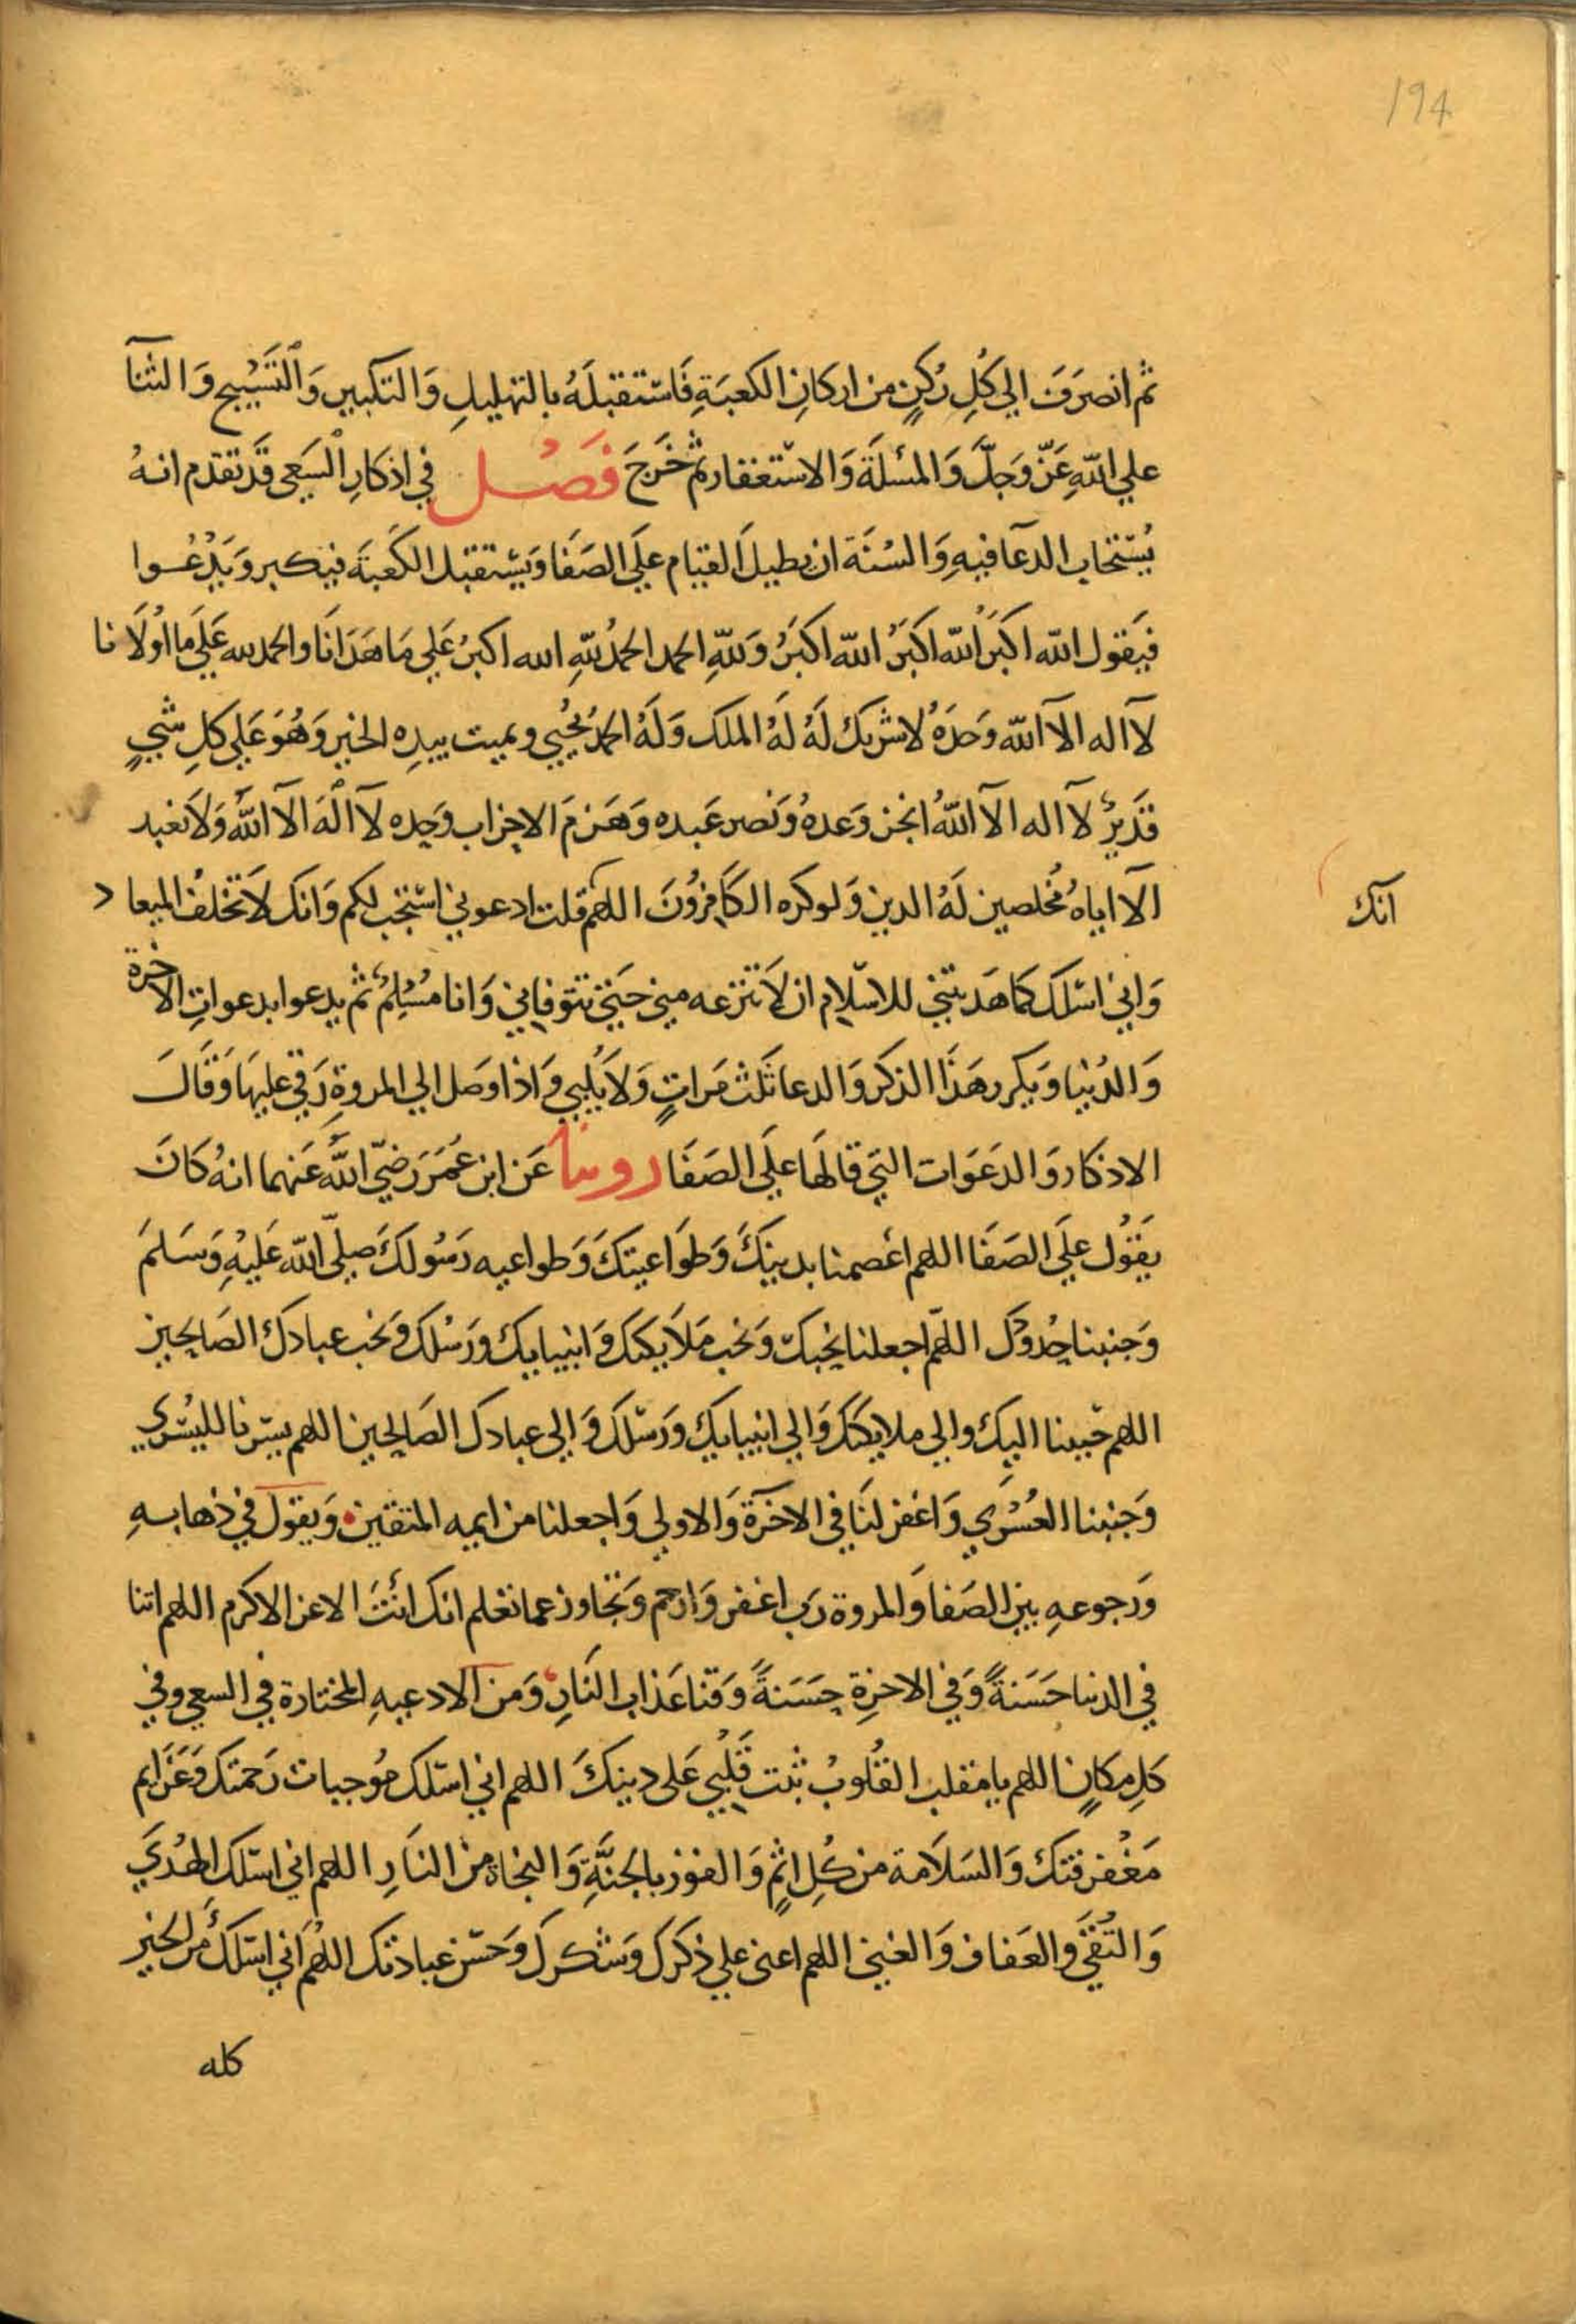 194
ثم انصرَفَ الي كُلِ رُكنٍ من اركانِ الكعبَةِ فَاسْتقبلَهُ بالتهليلِ وَالتكبيرِ وَالتَسْبيحِ وَالثنآ
علي اللّهِ عَزّ وَجلَّ وَالمسْئلَة وَالاسْتغفار ثم خَرجَ فَصْل في اذكارِ السَعي قَد تقدم انهُ
يُسْتجاب الدعآ فيهِ وَالسُنَة ان يطيلَ القيام علَي الصَفَا وَيسْتقبل الكعَبَة فيكبر وَيَدْعُوا
فيَقول اللّه اكبَر اللّه اكبَر اللّه اكبَرُ وَللّهِ الحمد الحمدُ للّهِ الله اكبرُ عَلي مَا هَدَانَا والحمد لله عَلَي مَا اوْلَانا
لآاله الآ اللّه وَحدَهُ لا شريك لَهُ لَهُ الملك وَلَهُ الحمدُ يُحْيي ويميت بيدِه الخير وَهُوَ عَلي كلِ شيءٍ
قَديرٌ لآاله الآ اللّهُ انجز وَعدهُ وَنصر عَبده وَهَزمَ الاحزاب وَحده لآ الَهَ الآ اللّهُ وَلَا نعبد
الآ اياهُ مُخلصين لَهُ الدين وَلوكره الكَافِرُونَ اللهم قلت ادعوني اسْتجب لكم وَانك لَا تخلفُ الميعاد
انك
وَاني اسْلك كمَا هَديتني للاسْلام ان لَا تنزعه مني حَتي تتوفاني وَانا مسُلِمٌ ثم يدعوا بدعواتِ الاخرة
وَالدُنيا وَيكرر هَذَا الذكر وَالدعا ثَلث مَراتٍ وَلَا يُلبي وَاذا وصَل الي المروةِ رَقي عليهَا وَقَالَ
الاذكار وَالدعَوَات التي قالهَا علَي الصَفَا روينا عَن ابن عُمَرَ رَضيَ اللّه عَنهما انهُ كَانَ
يقَوُل علَي الصَفَا اللهم اعْصمنا بدينكَ وَطوَاعيتكَ وَطواعيه رَسُولكَ صلّي اللّه عَليْهِ وَسَلمَ
وَجنبنا حُدودَك اللهّم اجعلنا نحُبكَ وَنحُب مَلَايكتك وَانبيايك وَرَسْلك وَنحب عبادكَ الصَالحين
اللهم حَببنا اليك والي ملايكتكَ وَالي انبيايك وَرَسْلك وَالي عبادك الصَالحين اللهم يسّرنا لليُسْري
وَجنبنا العُسْرَي وَاغفر لنَا في الاخرَة وَالاولي وَاجعلنا من ايمه المتقين وَيقول في ذهابهِ
وَرجوعهِ بين الصَفا وَالمروة رَب اغفر وَارحم وَتجاوز عما تعْلم انك انْتَ الاعز الاكرم اللهم اتنا
في الدنيا حَسَنةً وَفي الاخرِة حَسَنةً وَقنا عَذاب النَارِ وَمن الادعيهِ المختارة في السعي وفي
كلِ مكانٍ اللهم يا مقلب القُلوبْ ثبت قَلبِي عَلي دينكَ اللهم اني اسْلك موُجبات رَحمتك وَعَزَايم
مَغفرتك وَالسَلَامة من كُلِ اثمٍ وَالفوز بالجنَّةِ وَالنجاة من النارِ اللهم اني اسْلك الهُدَي
وَالتُقَي وَالعَفاف وَالغني اللهم اعني علي ذكرك وَشكرك وَحسْن عبادتك اللهُم اَني اسْلكَ مِن الخير
كله